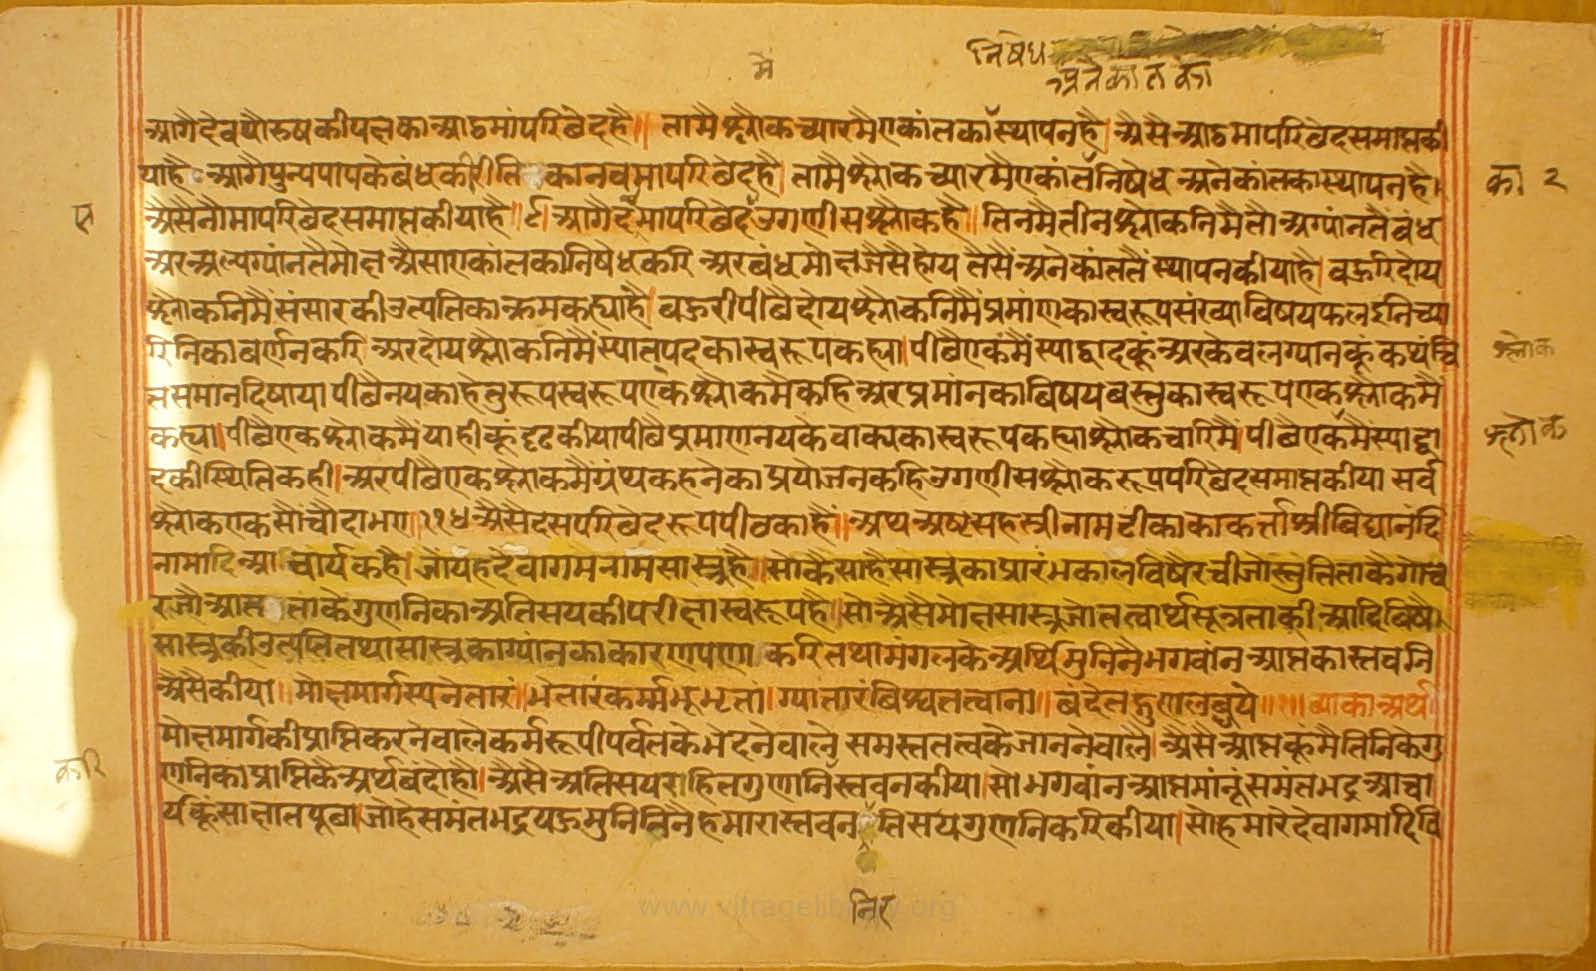 निषेध
अनेकांत का
में
आगैदेवयौरुषकीपलकाआठमांपरिछेदहै॥ तामैश्लोकच्यारमैएकांतकास्थापनहै। अैसैआठमापरिछेदसमाप्तकी
याहै आगैपुन्यपापकेबंधकीरीति कानवमापरिछेदहै। तामैश्लोकच्यारमैएकांतनिषेध अनेकांतकास्थापनहै।
का २
अैसैनौमापरिछेदसमाप्तकीयाहै।९। आगैदसमापरिछेदउगणीसश्लोकहै॥ तिनमैतीनश्लोकनिमैतौअग्यांनतैबंध
अरअल्पग्यांनतैमोक्ष अैसाएकांतकानिषेधकरि अरबंधमोक्षजैसैहोय तैसैंअनेकांततैस्थापनकीयाहै। बहुरिदोय
श्लोकनिमैंसंसारकीउत्पतिकाक्रमकह्याहै। बहुरीपीछैदोयश्लोकनिमैंप्रमांणकास्वरूपसंख्याविषयफलइनिच्या
रिनिकाबर्णनकरि अरदोयश्लोकनिमैंस्यात्पदकास्वरूपकह्या। पीछैएकमैंस्याद्वादकूंअरकेवलग्यानकूंकथंचि
श्लोक
त्तसमांनदिषाया पीछैनयकाहेतुरूपस्वरूपएकश्लोकमैकहिअरप्रमांनकाबिषयबस्तुकास्वरूपएकश्लोकमै
कह्या। पीछैएकश्लोकमैयाहीकूंदृढकीयापीछैप्रमाणनयकेवाक्यकास्वरूपकह्याश्लोकचारिमै। पीछैएकमैस्याद्वा
श्लोक
दकीस्थितिकही। अरपीछैएकश्लोकमैग्रंथकहनेकाप्रयोजनकहिउगणीसश्लोकरूपपरिछेदसमाप्तकीया सर्व
श्लोकएकसौचौदाभए।११४अैसैदसपरिछेदरूपपीठकाहै॥ अथअष्टसहस्त्रीनामटीकाकाकर्त्ताश्रीबिद्यानंदि
नामादिआ चार्यकहै। जोयहदेवागमनामसास्त्रहै॥ सोकैसाहैसास्त्रकाप्रारंभकालविषैरचीजोस्तुतिताकैगोच
रजोआप्त ताकेगुणनिकाअतिसयकीपरीक्षास्वरूपहै। सोअैसैमोक्षसास्त्रजोतत्वार्थसूत्रताकीआदिबिषै।
सास्त्रकीउत्पत्तितथासास्त्रकाग्यांनकाकारणपणा करितथामंगलकेअर्थिमुनिनैभगवांन आप्तकास्तवनि
अैसैकीया। मोक्षमार्गस्यनेतारं॥भेतारंकर्म्मभूभृतां।ग्यातारंबिश्वतत्वानां॥ बंदेतद्गुणलब्धये॥१॥ याकाअर्थ
मोक्षमार्गकीप्राप्तिकरनेवालेकर्मरूपीपर्वतकेभेदनेवाले समस्ततत्वकेजाननेवाले। अैसैआप्तकूमैतिनिकेगु
करि
णनिकीप्राप्तिकेअर्थबंदौहौ। अैसैअतिसयरहितगुणनिस्तवनकीया। सोभगवांनआप्तमांनूंसमंतभद्रआचा
र्यकूसाक्षातपूछा। जोहेसमंतभद्रयहमुनितिनैहमारास्तवन तिसयगुणनिकरिकीया। सोहमारेदेवागमादिवि
निर
www.vitragelibrary.org